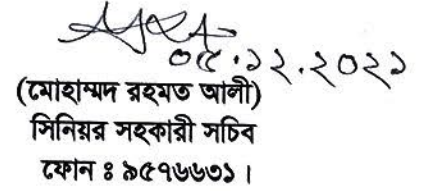 ০৫.১২.২০২১
(মোহাম্মদ রহমত আলী)
সিনিয়র সহকারী সচিব
ফোন ঃ ৯৫৭৬৬৩১।